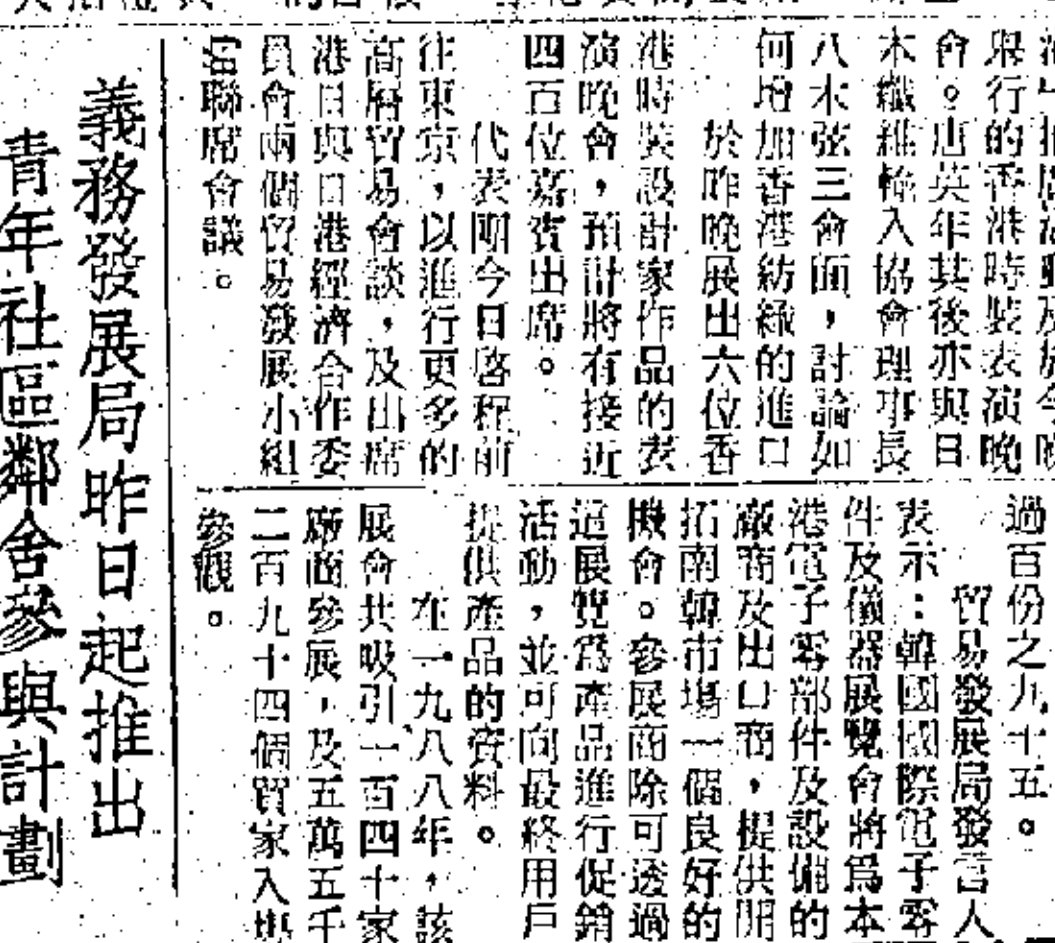 舉行的香港時裝表演晚
會。唐英年其後亦與日
本纖維輸入協會理事長
八木弦三會面，討論如
何增加香港紡織的進口
於昨晚展出六位香
港時裝設計家作品的表
演晚會，預計將有接近
四百位嘉賓出席。
代表團今日啓程前
往東京，以進行更多的
高層貿易會談，及出席
港日與日港經濟合作委
員會兩個貿易發展小組
聯席會議。
過百份之九十五。
貿易發展局發言人
表示：韓國國際電子零
件及儀器展覽會將爲本
港電子零部件及設備的
廠商及出口商，提供開
拓南韓市場一個良好的
機會。參展商除可透過
這展覽爲產品進行促銷
活動，並可向最終用戶
提供產品的資料。
在一九八八年，該
展會共吸引一百四十家
廠商參展，及五萬五千
二百九十四個買家入場
參觀。
義務發展局昨日起推出
青年社區鄰舍參與計劃